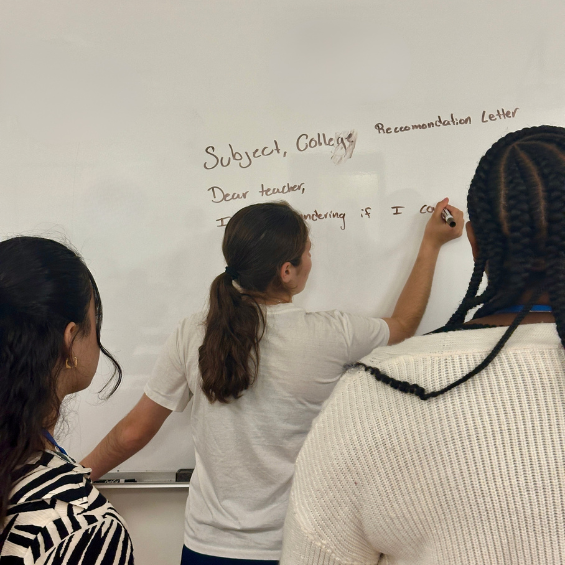 Subject, College Reccomondation Letter
Dear teacher,
I ndering if I co